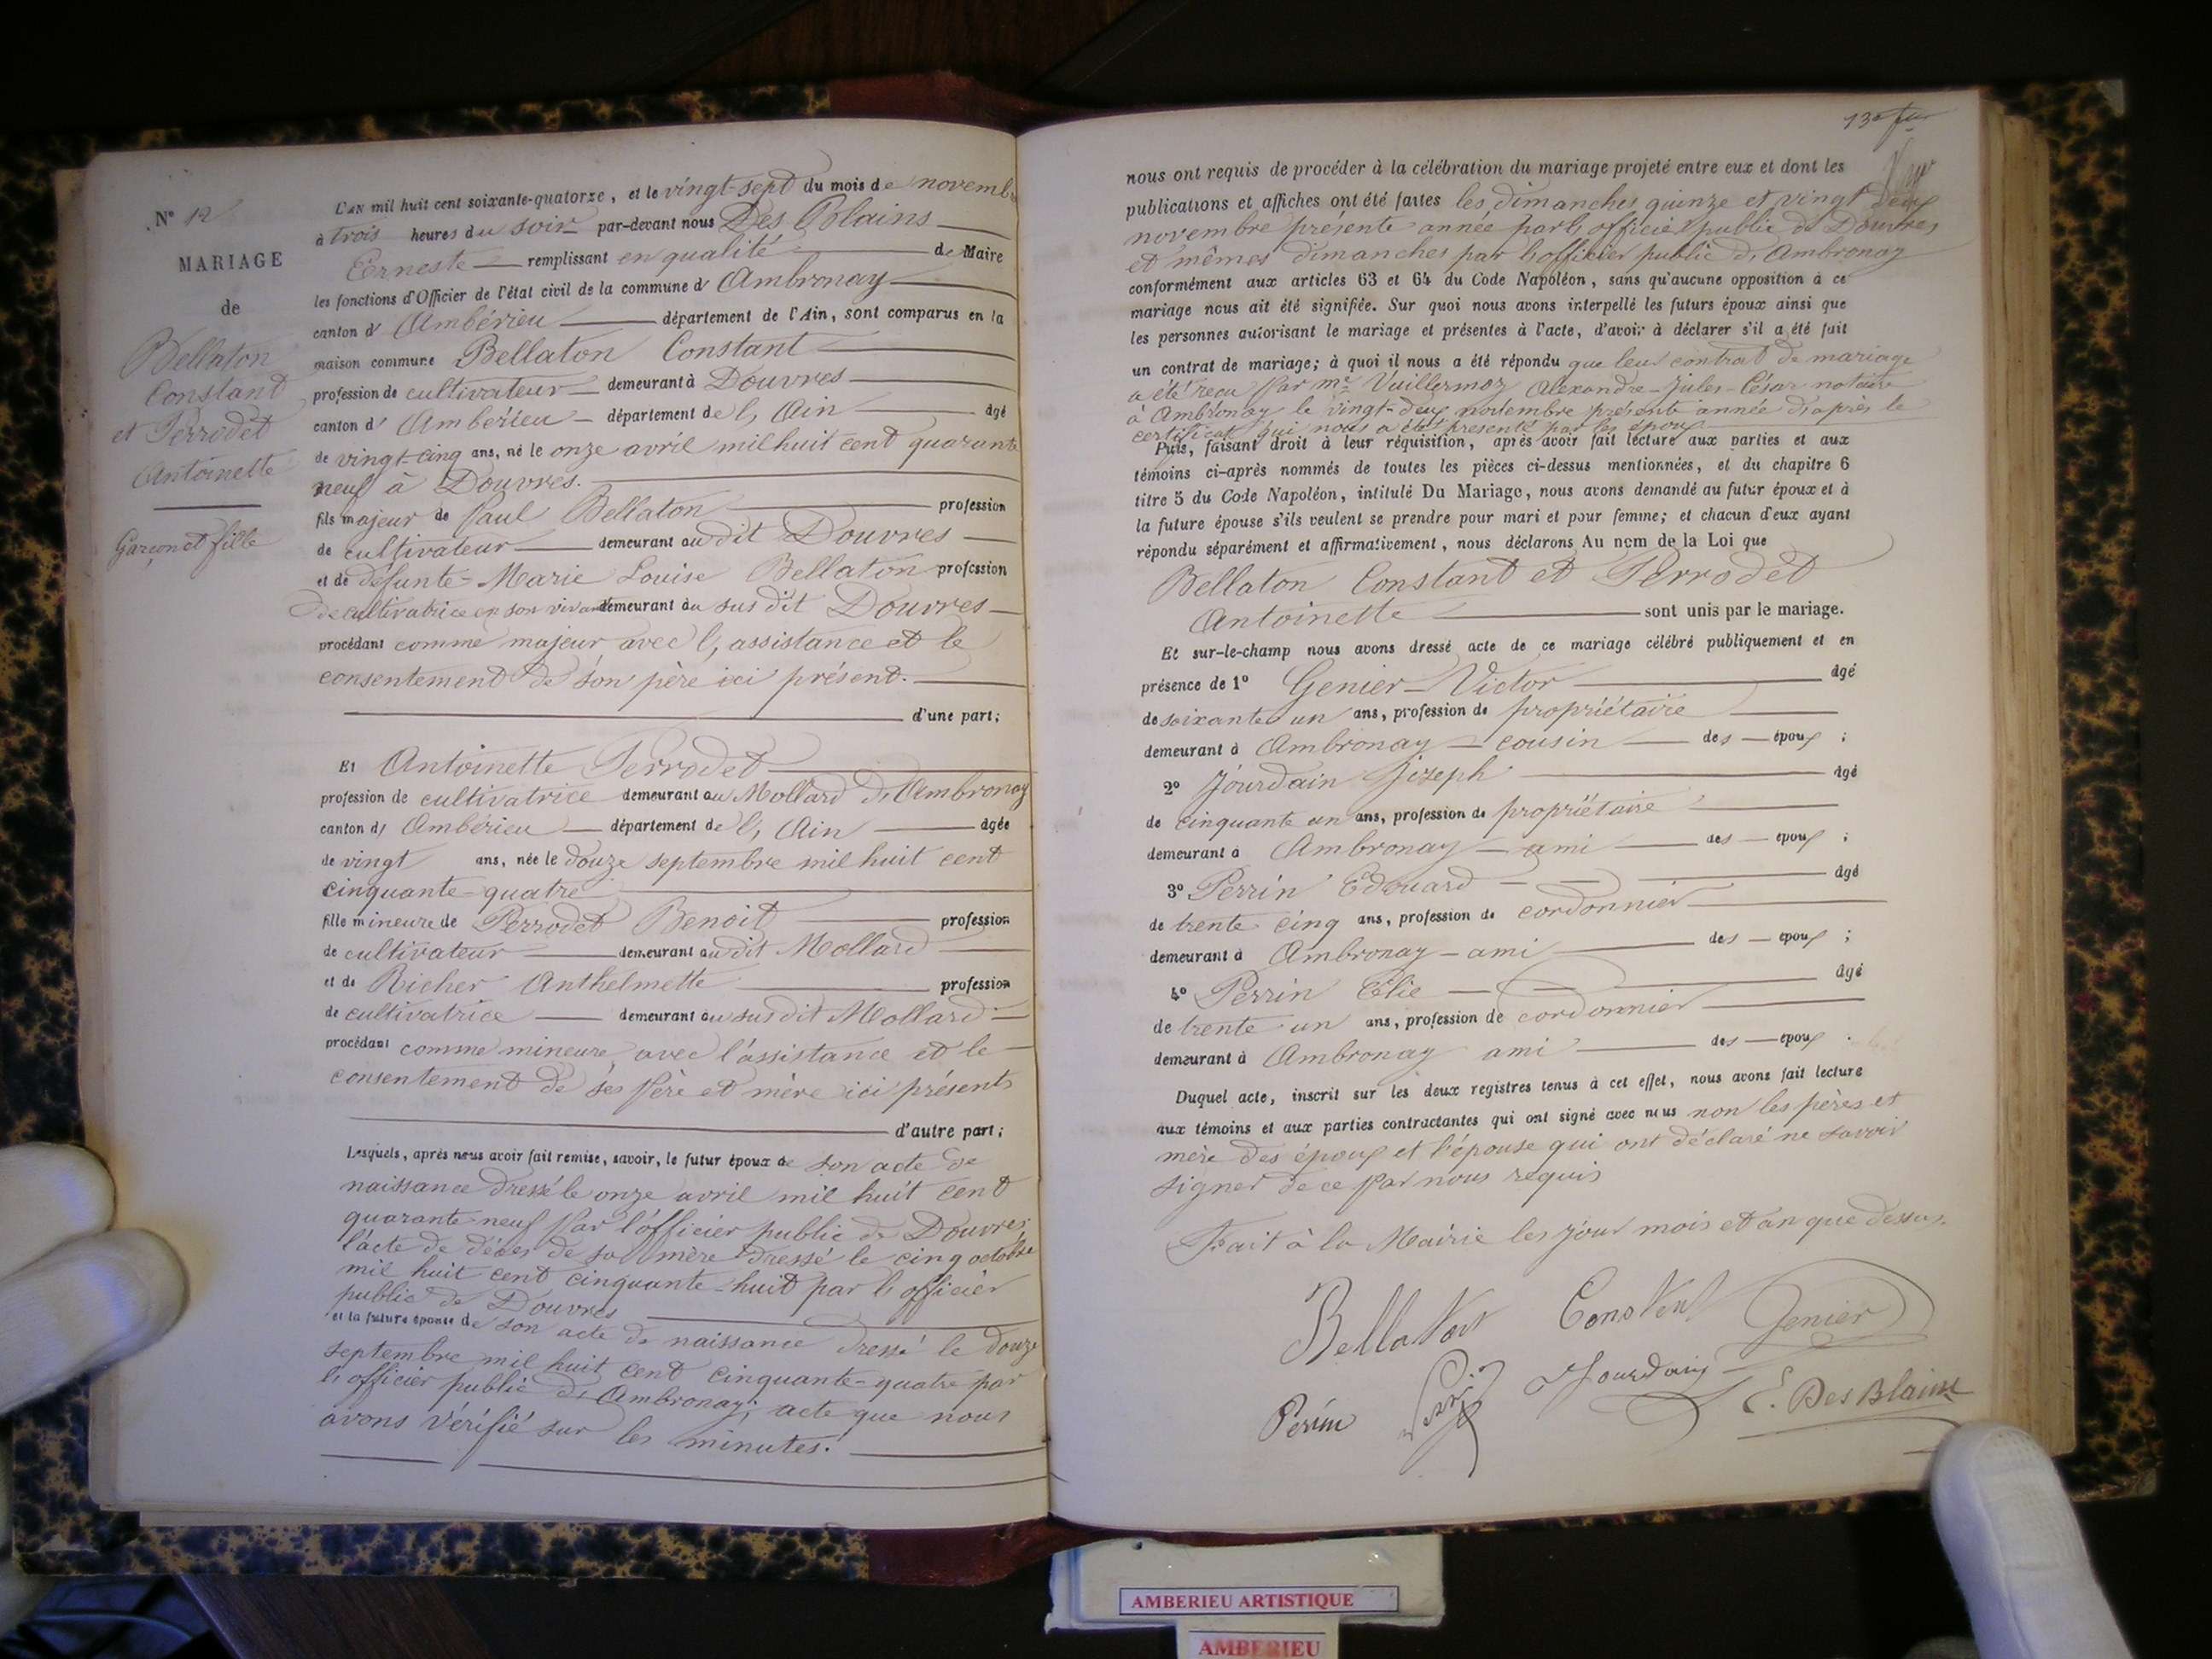 N° 12
MARIAGE
de
Bellaton
Constant
et Perrodet
Antoinette
Garçon et fille
L'AN mil huit cent soixante-quatorze, et le vingt-sept du mois de novembre
à trois heures du soir par-devant nous Des Blains
Erneste remplissant en qualité de Maire
les fonctions d'Officier de l'état civil de la commune d' Ambronay
canton d' Ambérieu département de l'Ain, sont comparus en la
maison commune Bellaton Constant
profession de cultivateur demeurant à Douvres
canton d' Ambérieu département de l, Ain âgé
de vingt-cinq ans, né le onze avril mil huit cent quarante
neuf à Douvres.
fils majeur de Paul Bellaton profession
de cultivateur demeurant au dit Douvres
et de défunte Marie Louise Bellaton profession
de cultivatrice en son vivant demeurant au sus dit Douvres
procédant comme majeur avec l, assistance et le
consentement de son père ici présent.
d'une part;
Et Antoinette Perrodet
profession de cultivatrice demeurant au Mollard d, Ambronay
canton d, Ambérieu département de l, Ain âgée
de vingt ans, née le douze septembre mil huit cent
cinquante-quatre
fille mineure de Perrodet Benoit profession
de cultivateur demeurant au dit Mollard
et de Richer Anthelmette profession
de cultivatrice demeurant au sus dit Mollard
procédant comme mineure avec l'assistance et le
consentement de ses père et mère ici présents
d'autre part;
Lesquels, après nous avoir fait remise, savoir, le futur époux de son acte de
naissance dressé le onze avril mil huit cent
quarante-neuf par l'officier public de Douvres;
l'acte de décès de sa mère dressé le cinq octobre
mil huit cent cinquante-huit par l, officier
public de Douvres
et la future épouse de son acte de naissance dressé le douze
septembre mil huit cent cinquante-quatre par
l, officier public d, Ambronay; acte que nous
avons vérifié sur les minutes.
13e
nous ont requis de procéder à la célébration du mariage projeté entre eux et dont les
publications et affiches ont été faites les dimanches quinze et vingt deux
novembre présente année par l, officier public de Douvres
et mêmes dimanches par l, officier public d, Ambronay
conformément aux articles 63 et 64 du Code Napoléon, sans qu'aucune opposition à ce
mariage nous ait été signifiée. Sur quoi nous avons interpellé les futurs époux ainsi que
les personnes autorisant le mariage et présentes à l'acte, d'avoir à déclarer s'il a été fait
un contrat de mariage; à quoi il nous a été répondu que leur contrat de mariage
a été reçu par me Vuillermoz Alexandre-Jules-César notaire
à Ambronay le vingt-deux novembre présente année d'après le
certificat qui nous a été présenté par les époux
Puis, faisant droit à leur réquisition, après avoir fait lecture aux parties et aux
témoins ci-après nommés de toutes les pièces ci-dessus mentionnées, et du chapitre 6
titre 5 du Code Napoléon, intitulé Du Mariage, nous avons demandé au futur époux et à
la future épouse s'ils veulent se prendre pour mari et pour femme; et chacun d'eux ayant
répondu séparément et affirmativement, nous déclarons Au nom de la Loi que
Bellaton Constant et Perrodet
Antoinette sont unis par le mariage.
Et sur-le-champ nous avons dressé acte de ce mariage célébré publiquement et en
présence de 1° Genier Victor âgé
de soixante un ans, profession de propriétaire
demeurant à Ambronay cousin des époux;
2° Jourdain Jozeph âgé
de cinquante un ans, profession de propriétaire
demeurant à Ambronay ami des époux;
3° Perrin Edouard âgé
de trente cinq ans, profession de cordonnier
demeurant à Ambronay ami des époux;
4° Perrin Elie âgé
de trente un ans, profession de cordonnier
demeurant à Ambronay ami des époux.
Duquel acte, inscrit sur les deux registres tenus à cet effet, nous avons fait lecture
aux témoins et aux parties contractantes qui ont signé avec nous non les pères et
mère des époux et l'épouse qui ont déclaré ne savoir
signer de ce par nous requis
Fait à la Mairie les jour mois et an que dessus.
Bellaton Constent Genier
Perin Jourdain E. Des Blains
AMBERIEU ARTISTIQUE
AMBERIEU